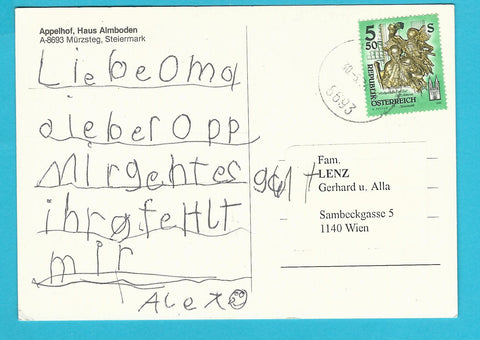 Appelhof, Haus Almboden
A-8693 Mürzsteg, Steiermark
Liebe Oma
aleber Opp
Mir geht es gut
ihr fehlt
mir
Alex
5 50 S
REPUBLIK ÖSTERREICH
8693
Fam.
LENZ
Gerhard u. Alla
Sambeckgasse 5
1140 Wien